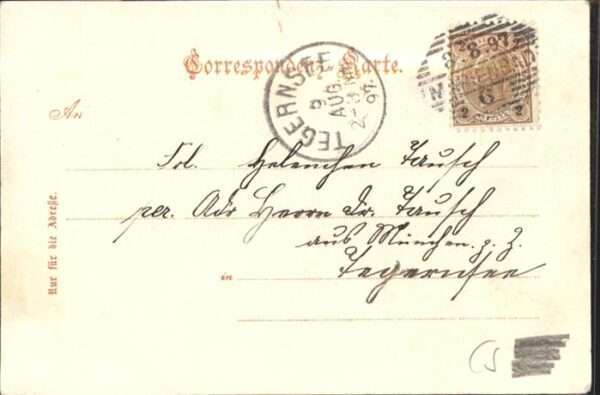 Correspondenz-Karte.
TEGERNSEE
9
AUG.
97.
8.97.
6
2 2
An
Frl. Helenchen Tausch
per. Adr Herrn Dr. Tausch
aus München. z. Z.
in Tegernsee
Nur für die Adreße.